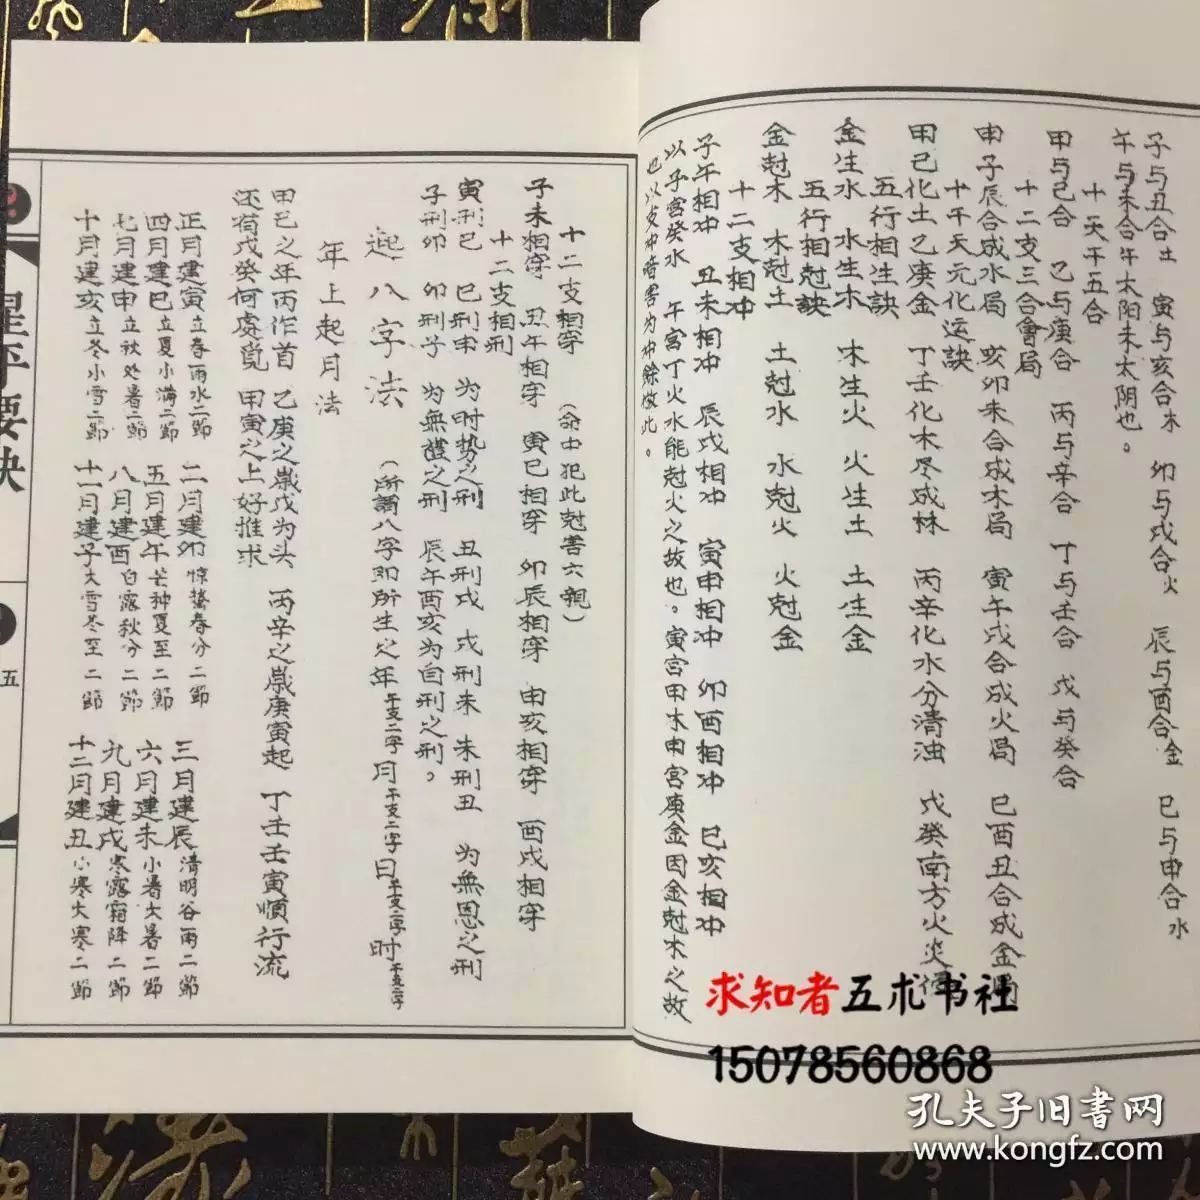 子与丑合土 寅与亥合木 卯与戌合火 辰与酉合金 巳与申合水
午与未合午太阳未太阴也。
十天干五合
甲与己合 乙与庚合 丙与辛合 丁与壬合 戊与癸合
十二支三合會局
申子辰合成水局 亥卯未合成木局 寅午戌合成火局 巳酉丑合成金局
十干天元化运訣
甲己化土乙庚金 丁壬化木尽成林 丙辛化水分清浊 戊癸南方火炎
五行相生訣
金生水 水生木 木生火 火生土 土生金
五行相尅訣
金尅木 木尅土 土尅水 水尅火 火尅金
十二支相冲
子午相冲 丑未相冲 辰戌相冲 寅申相冲 卯酉相冲 巳亥相冲
以子宮癸水 午宮丁火水能尅火之故也。寅宮甲木申宮庚金因金尅木之故
也以支冲暗害为冲餘倣此。
十二支相穿 (命中犯此尅害六親)
子未相穿 丑午相穿 寅巳相穿 卯辰相穿 申亥相穿 酉戌相穿
十二支相刑
寅刑巳 巳刑申 为时势之刑 丑刑戌 戌刑未 未刑丑 为無恩之刑
子刑卯 卯刑子 为無禮之刑 辰午酉亥为自刑之刑。
起八字法 (所謂八字即所生之年干支二字月干支二字日干支二字时干支二字
年上起月法
甲己之年丙作首 乙庚之歲戊为头 丙辛之歲庚寅起 丁壬壬寅順行流
还有戊癸何處覓 甲寅之上好推求
正月建寅立春雨水二節 二月建卯惊蟄春分二節 三月建辰清明谷雨二節
四月建巳立夏小满二節 五月建午芒种夏至二節 六月建未小暑大暑二節
七月建申立秋处暑二節 八月建酉白露秋分二節 九月建戌寒露霜降二節
十月建亥立冬小雪二節 十一月建子大雪冬至二節 十二月建丑小寒大寒二節
星平要訣
五
求知者五术书社
15078560868
孔夫子旧書网
www.kongfz.com